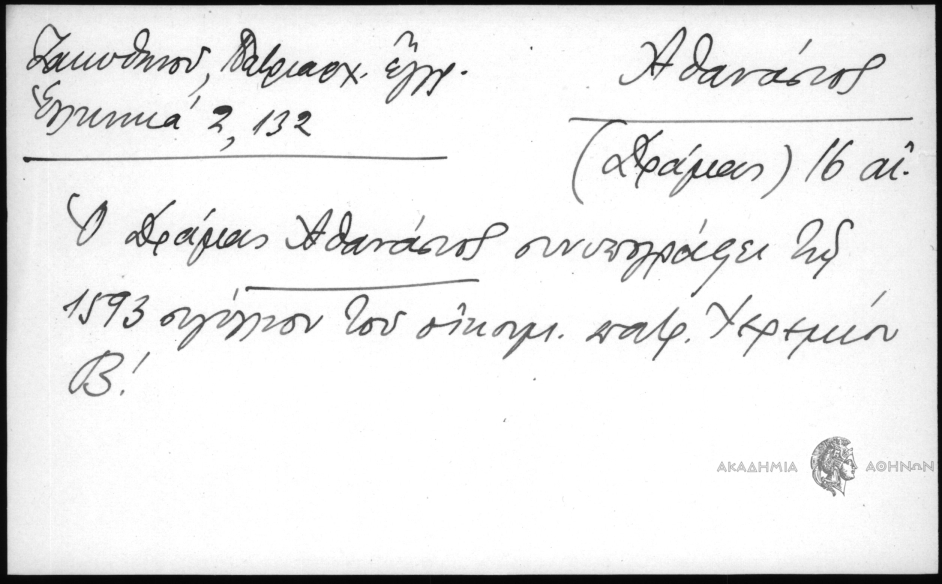 Ζακυθηνοῦ, Πατριαρχ. ἔγγρ.
Ἑλληνικά 2, 132
Ἀθανάσιος
(Δράμας) 16 αἰ.
Ὁ Δράμας Ἀθανάσιος συνυπογράφει τῷ
1593 σιγίλλιον τοῦ οἰκουμ. πατρ. Ἱερεμίου
Β΄.
ΑΚΑΔΗΜΙΑ ΑΘΗΝΩΝ